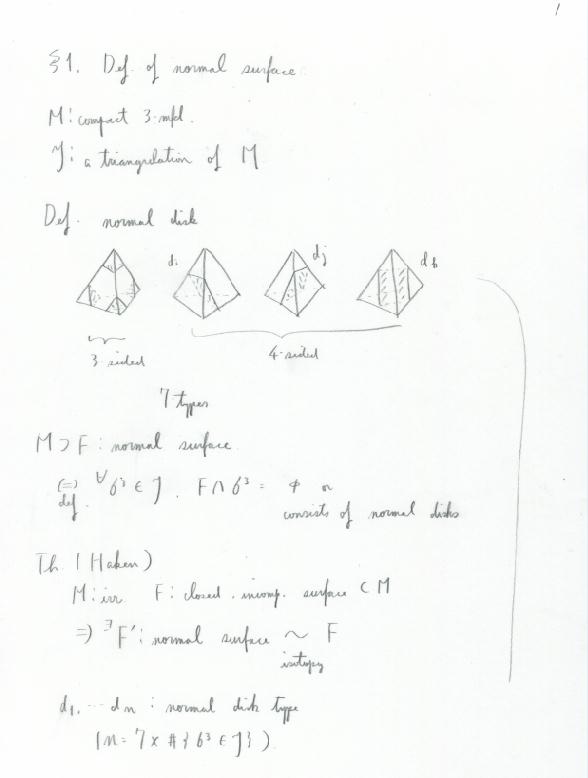 1
§1. Def. of normal surface.
M: compact 3-mfd.
J: a triangulation of M
Def. normal disk
di dj dk
3-sided 4-sided
7 types
M ⊃ F : normal surface.
⇔ def. ∀σ³ ∈ J. F ∩ σ³ = φ or
consists of normal disks
Th. (Haken)
M: irr. F: closed. incomp. surface ⊂ M
⇒ ∃F': normal surface ∼ F
isotopy
d1, ... dn : normal disk type
(n = 7 × #{σ³ ∈ J})